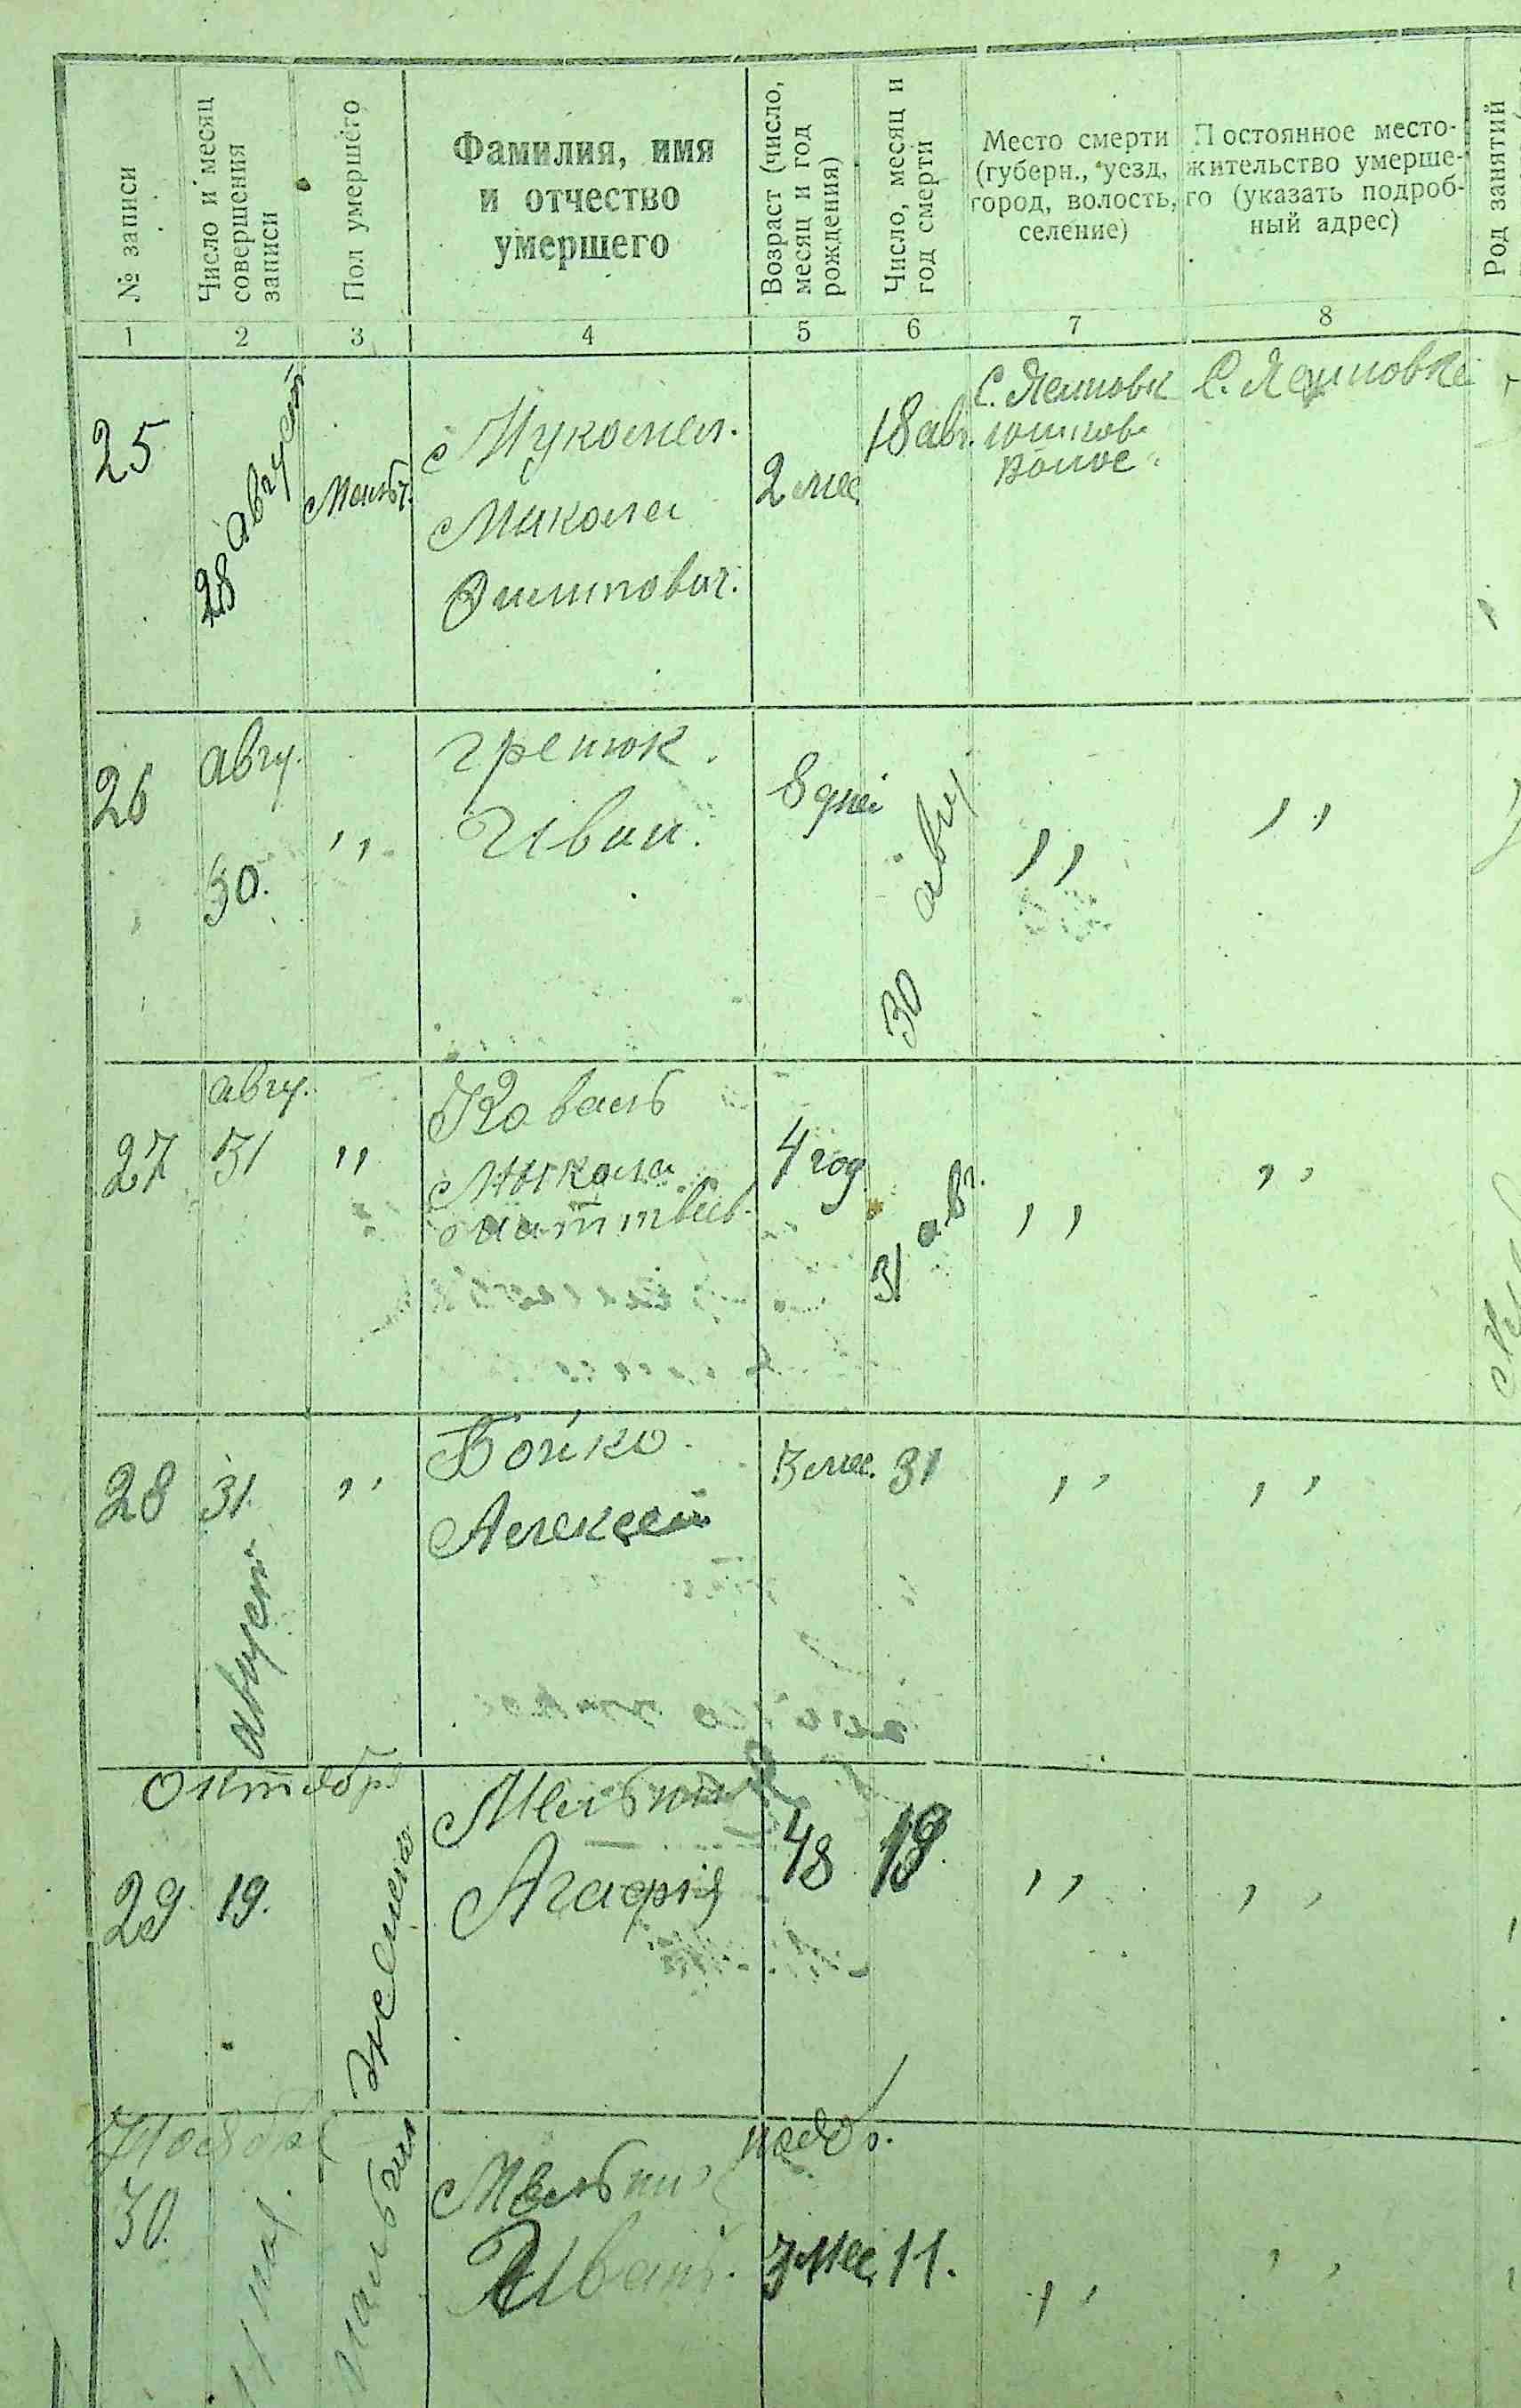 № записи
Число и месяц совершения записи
Пол умершего
Фамилия, имя
и отчество
умершего
Возраст (число, месяц и год рождения)
Число, месяц и год смерти
Место смерти
(губерн., уезд,
город, волость,
селение)
Постоянное место-
жительство умерше-
го (указать подроб-
ный адрес)
Род занятий
1 2 3 4 5 6 7 8
25
28 август
Мальч.
Микола
Филипович.
2 мес
18 авг.
С.
С.
26
авгу.
30.
,,
Иван.
8 дней
30 авгу
,,
,,
27
авгу.
31
,,
Коваль
Микола
4 год
31 авг.
,,
,,
28
31.
август
,,
Бойко.
Алексей
3 мес.
31
,,
,,
Октябр
29.
19.
Агафия
48
19.
,,
,,
Ноябр
30.
11 ноя.
Мельни
Иван.
3 мес.
ноябр.
11.
,,
,,